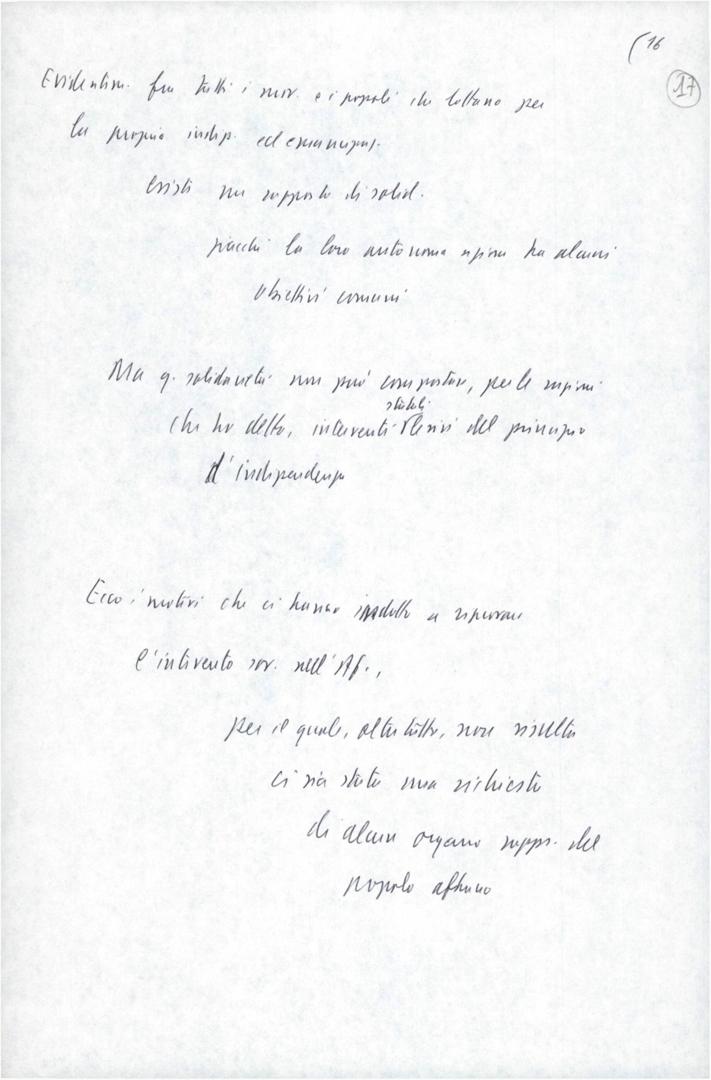 (16
17
Evidentem. fra tutti i mov. e i popoli che lottano per
la propria indip. ed emancipaz.
esiste un rapporto di solid.
giacché la loro autonoma azione ha alcuni
obiettivi comuni
Ma q. solidarietà non può comportare, per le ragioni
statali
che ho detto, interventi lesivi del principio
d'indipendenza
Ecco i motivi che ci hanno indotto a riprovare
l'intervento sov. nell'Af.,
per il quale, oltretutto, non risulta
ci sia stata una richiesta
di alcun organo rappr. del
popolo afhano